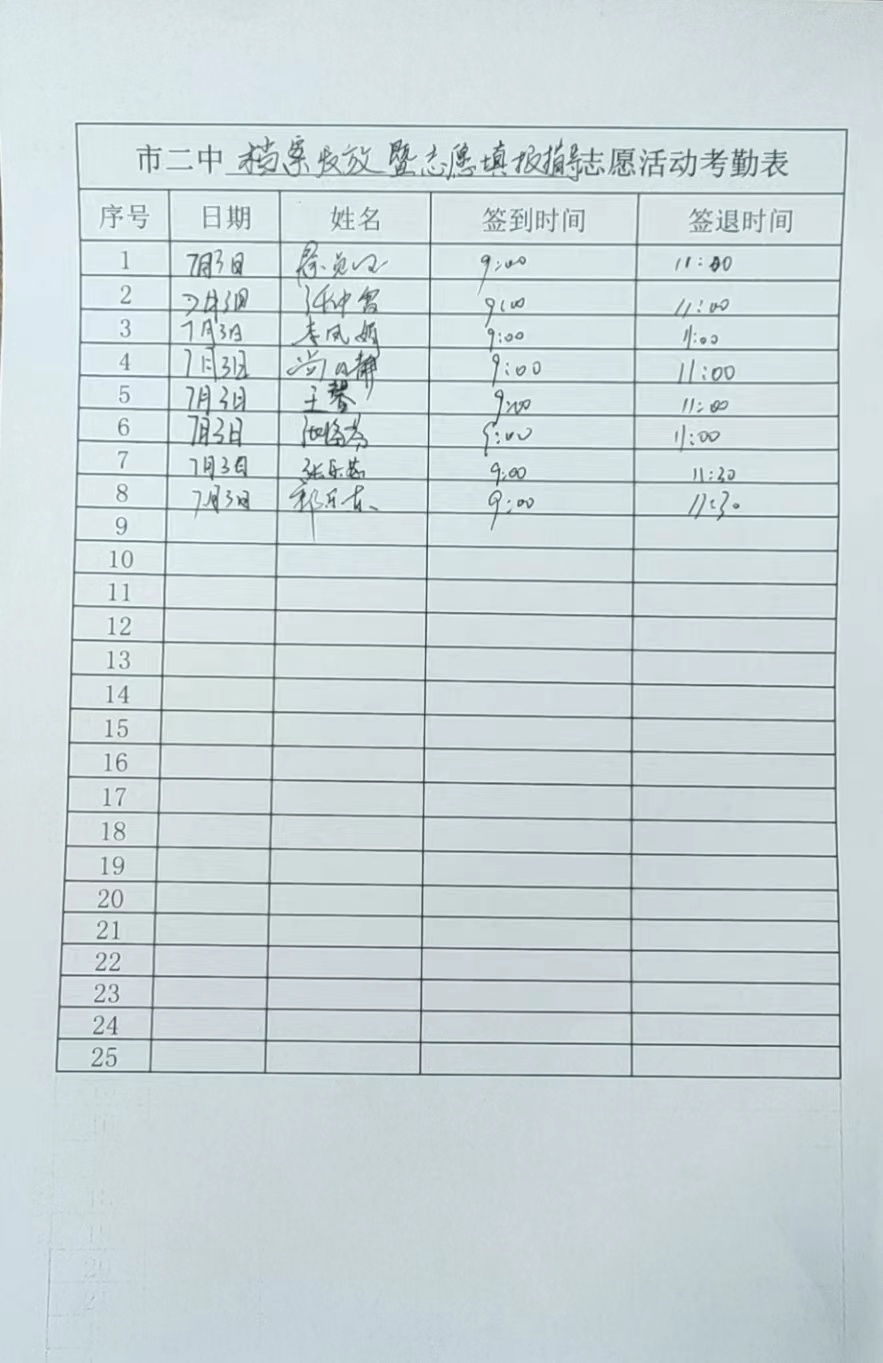 市二中 档案收放暨志愿填报指导志愿活动考勤表
序号 日期 姓名 签到时间 签退时间
1 7月3日 9:00 11:00
2 7月3日 9:00 11:00
3 7月3日 李凤娟 9:00 11:00
4 7月3日 9:00 11:00
5 7月3日 王馨 9:00 11:00
6 7月3日 9:00 11:00
7 7月3日 9:00 11:30
8 7月3日 9:00 11:30
9
10
11
12
13
14
15
16
17
18
19
20
21
22
23
24
25